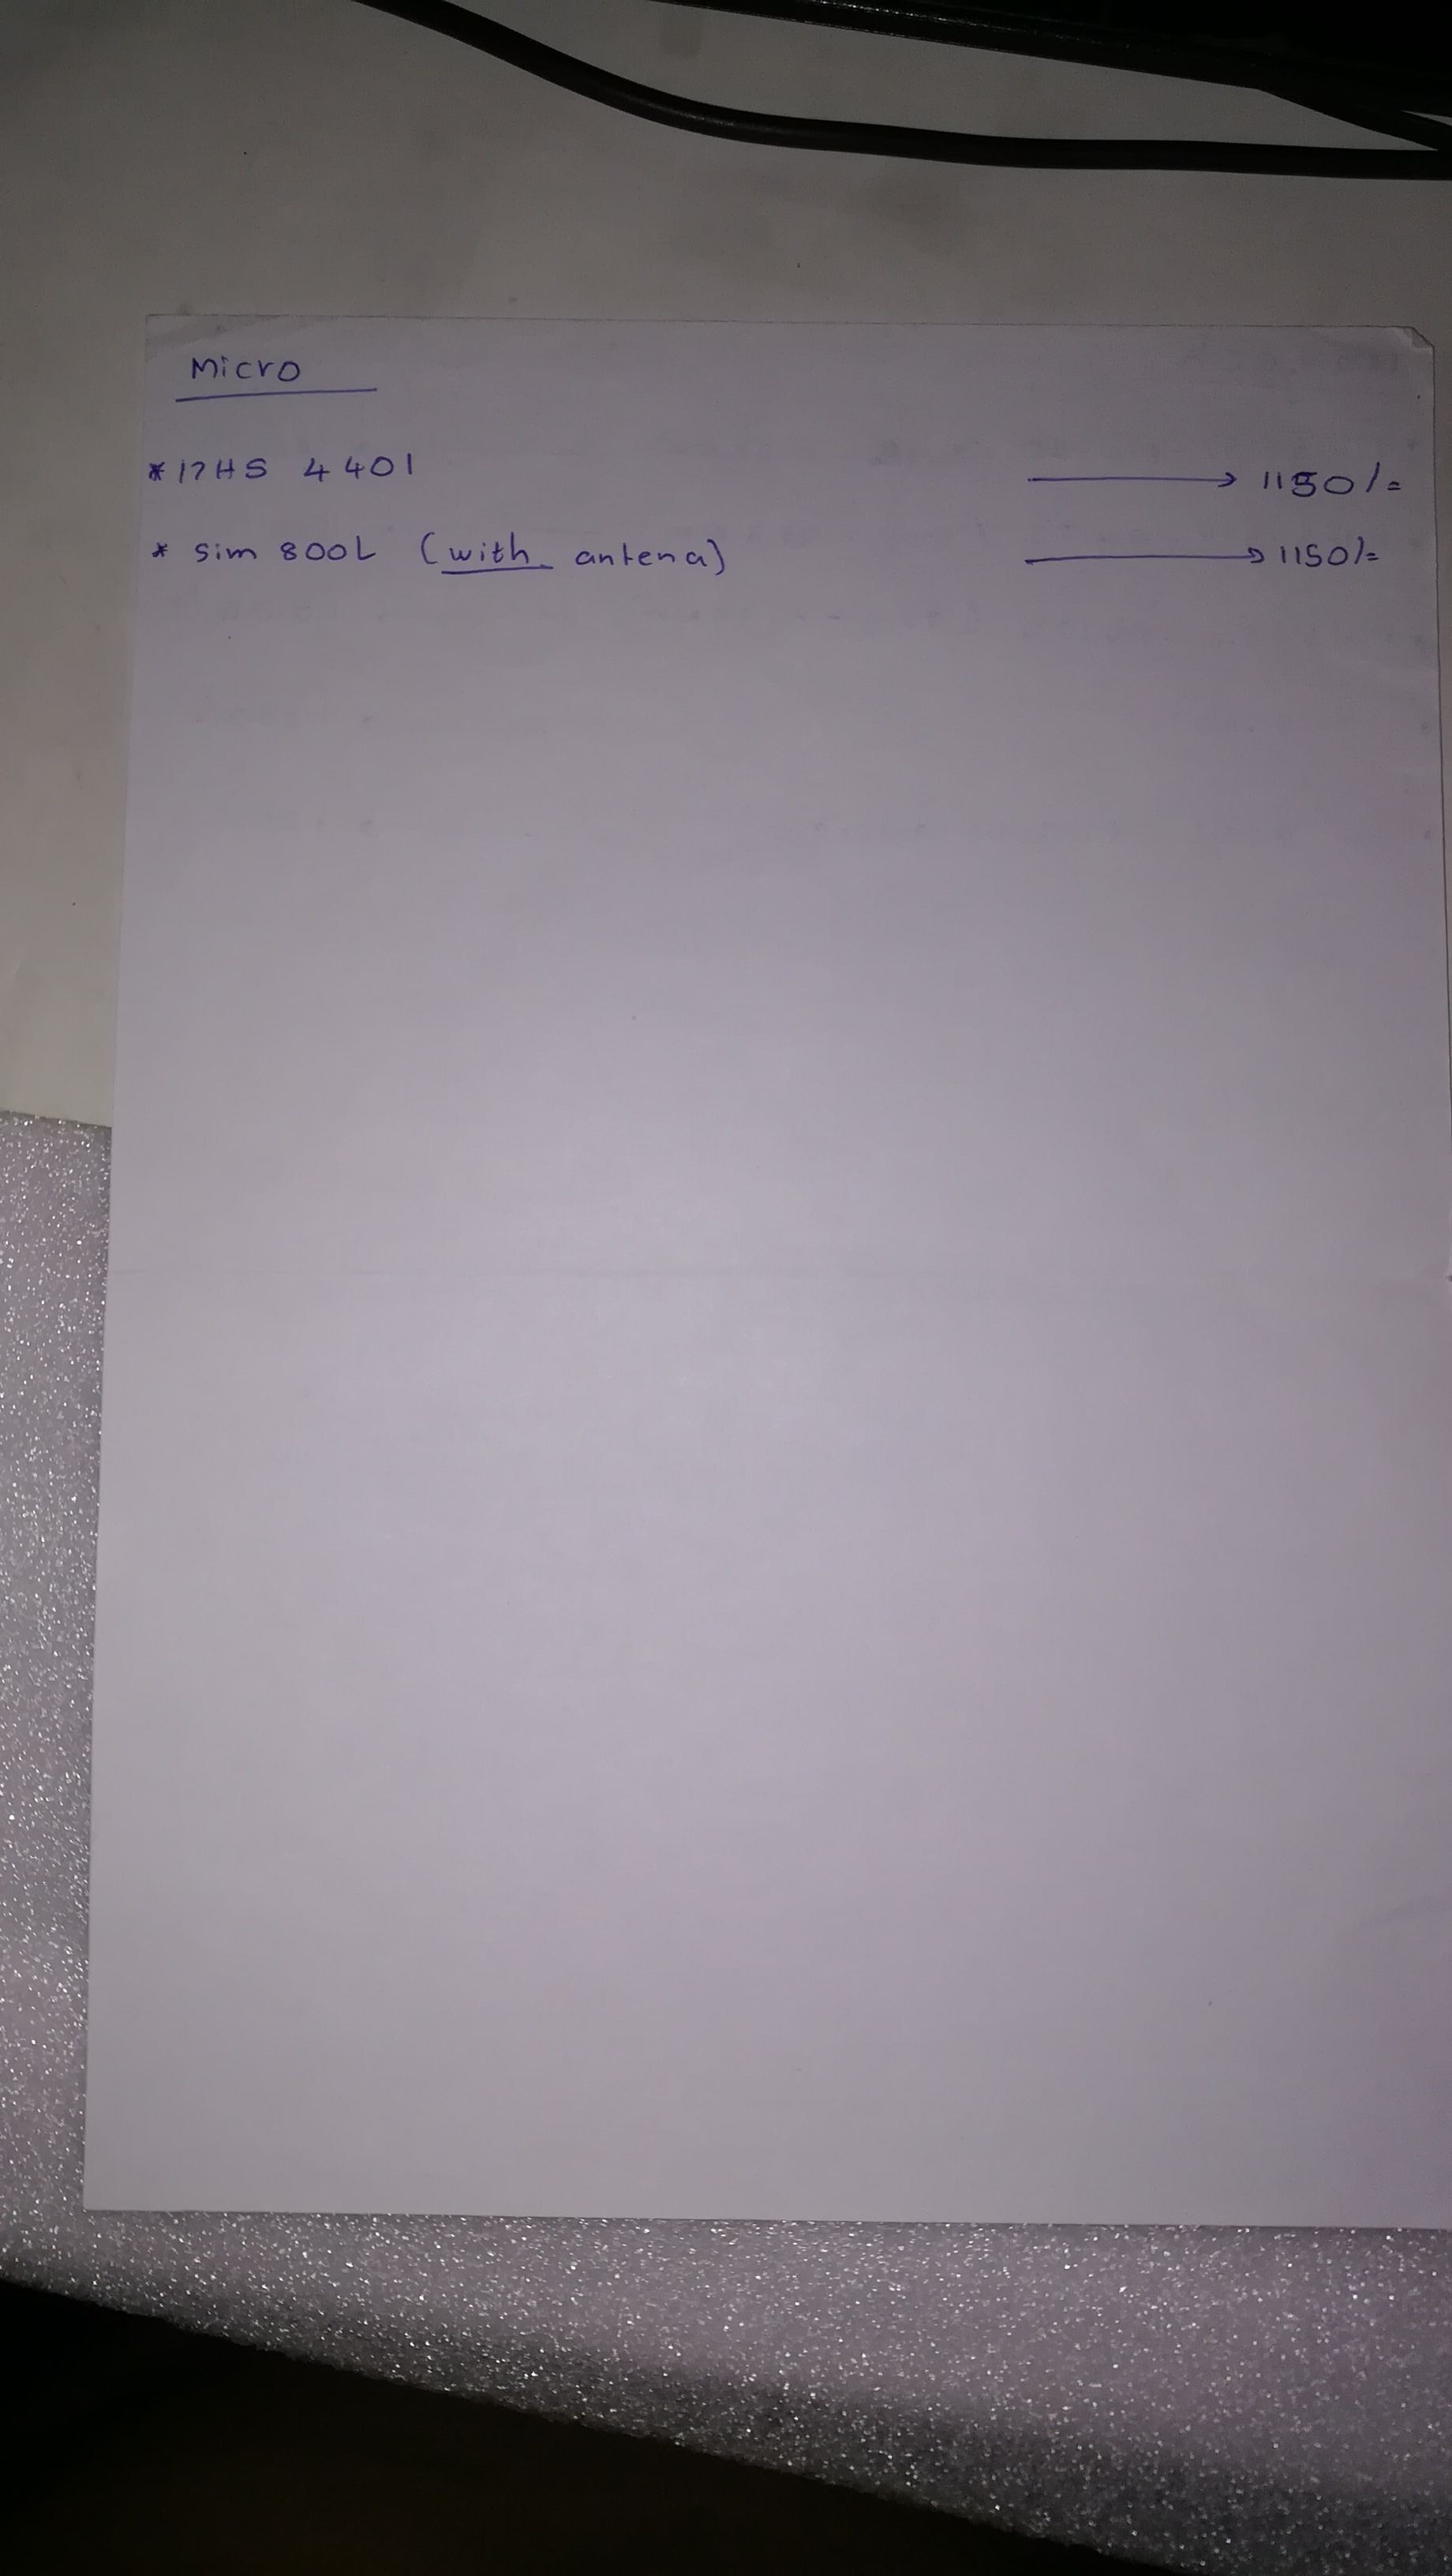 Micro
* 17HS 4401 → 1150/=
* sim 800L (with antena) → 1150/=